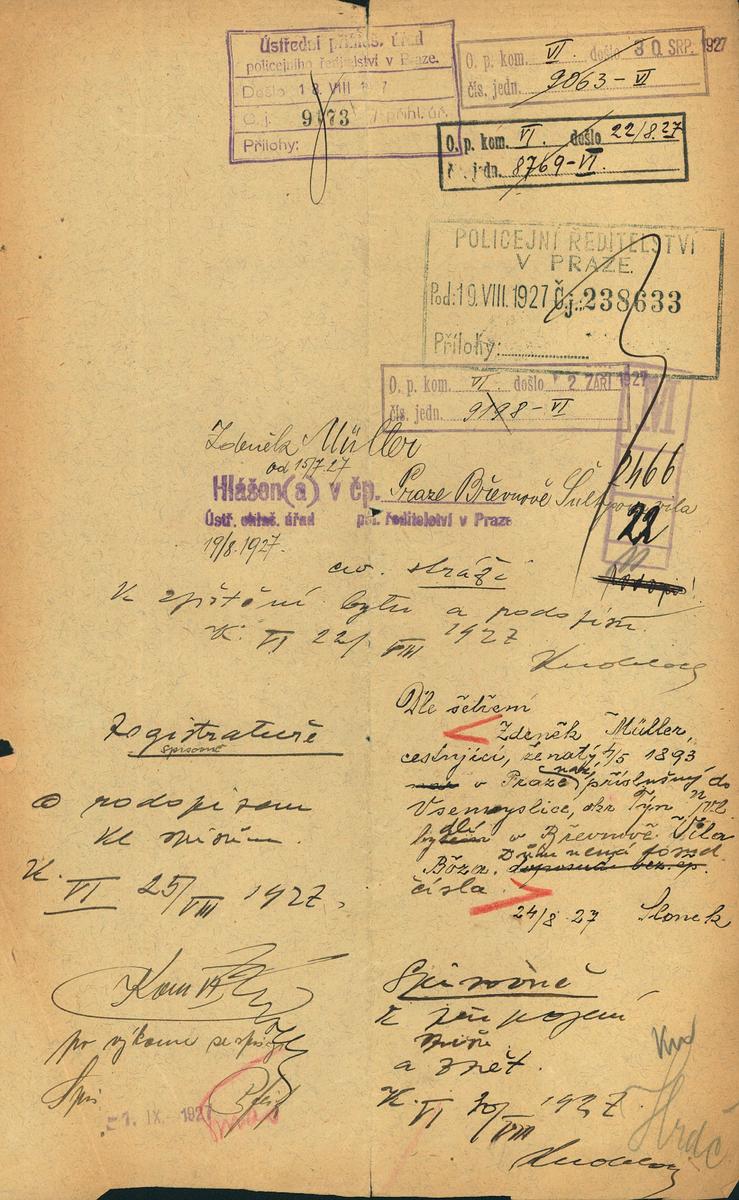 Ústřední přihlaš. úřad
policejního ředitelství v Praze.
Došlo 18 VIII 1927
Č. j. 9173 / přihl. úř.
Přílohy:
O. p. kom. VI. došlo 30. SRP. 1927
čís. jedn. 9063-VI
O. p. kom. VI. došlo 22/8.27
č. jedn. 8769-VI.
POLICEJNÍ ŘEDITELSTVÍ
V PRAZE.
Pod: 19. VIII. 1927 Čj.: 238633
Přílohy:
O. p. kom. VI. došlo 2. ZÁŘÍ 1927
čís. jedn. 9198-VI
M
2466
22
Zdeněk Müller
od 15/7.27
Hlášen(a) v čp. Praze Břevnově vila
Ústř. ohlaš. úřad pol. ředitelství v Praze
19/8.1927.
civ. stráži
K zjištění bytu a podojím
K. VI 22/VIII 1927
Dle šetření
Zdeněk Müller,
cestující, ženatý, 4/5 1893
v Praze nar. příslušný do
Všemyslice, okr. Týn n/Vl.
bydlí v Břevnově Vila
Boža. Dům nemá
čísla.
24/8.27 Slonek
registratuře
spisovně
ke spisům.
K. VI 25/VIII 1927.
Kom VI
po výkonu se
Spis
1. IX. 1927
Spisovně
k připojení
spisu
a zpět.
K. VI 30/VIII 1927.